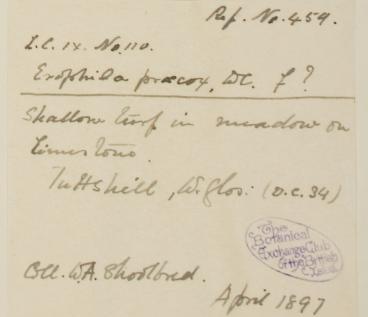 Ref. No. 459.
L.C. ix. No. 110.
Erophila præcox, DC. f ?
Shallow turf in meadow on
limestone.
Tuttshill, W. Glos: (D.C. 34)
The
Botanical
Exchange Club
of the British
Isles
Coll. W.A. Shoolbred.
April 1897